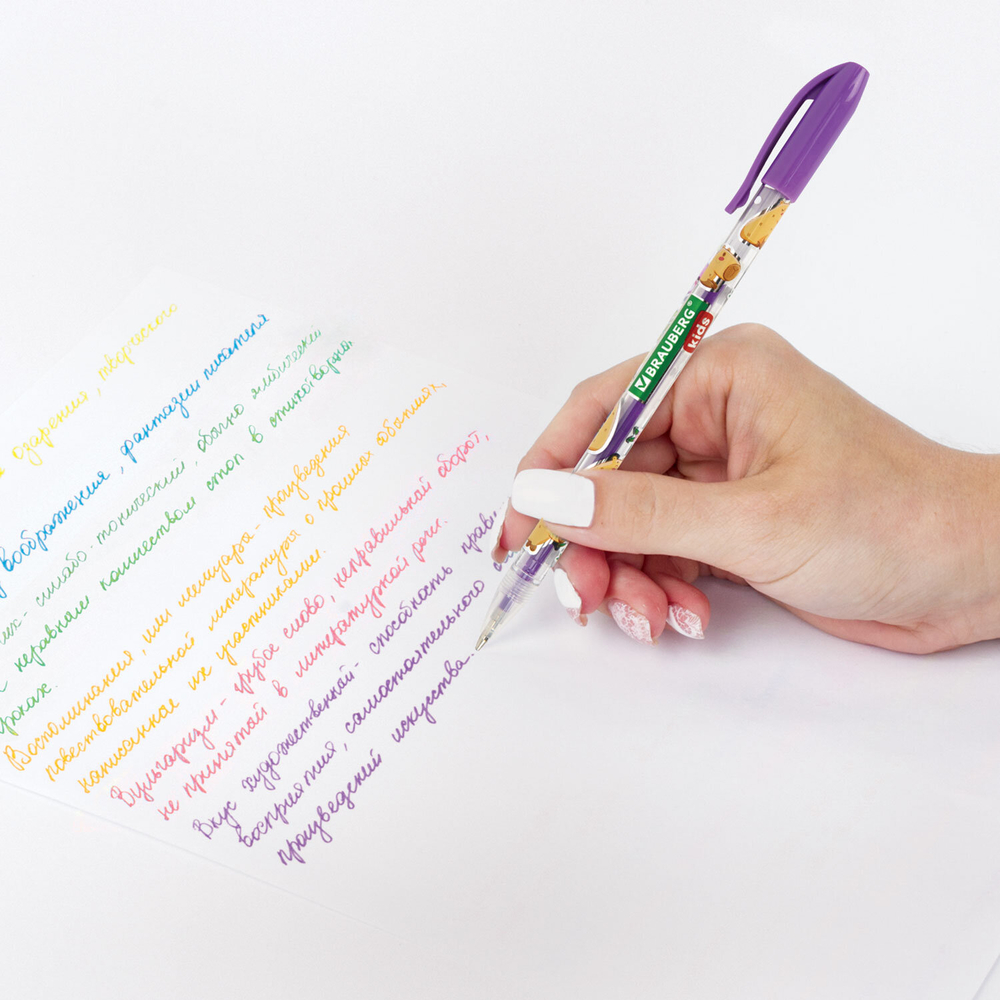 озарения, творческого
воображения, фантазии писателя
силлабо-тонический, обычно ямбический
с неравным количеством стоп в стихотворных
строках.
Воспоминания, или мемуары - произведения
повествовательной литературы о прошлых событиях,
написанное их участниками.
Вульгаризм - грубое слово, неправильный оборот,
не принятой в литературной речи.
Вкус художественный - способность прави
восприятия, самостоятельного
произведений искусства.
BRAUBERG®
kids